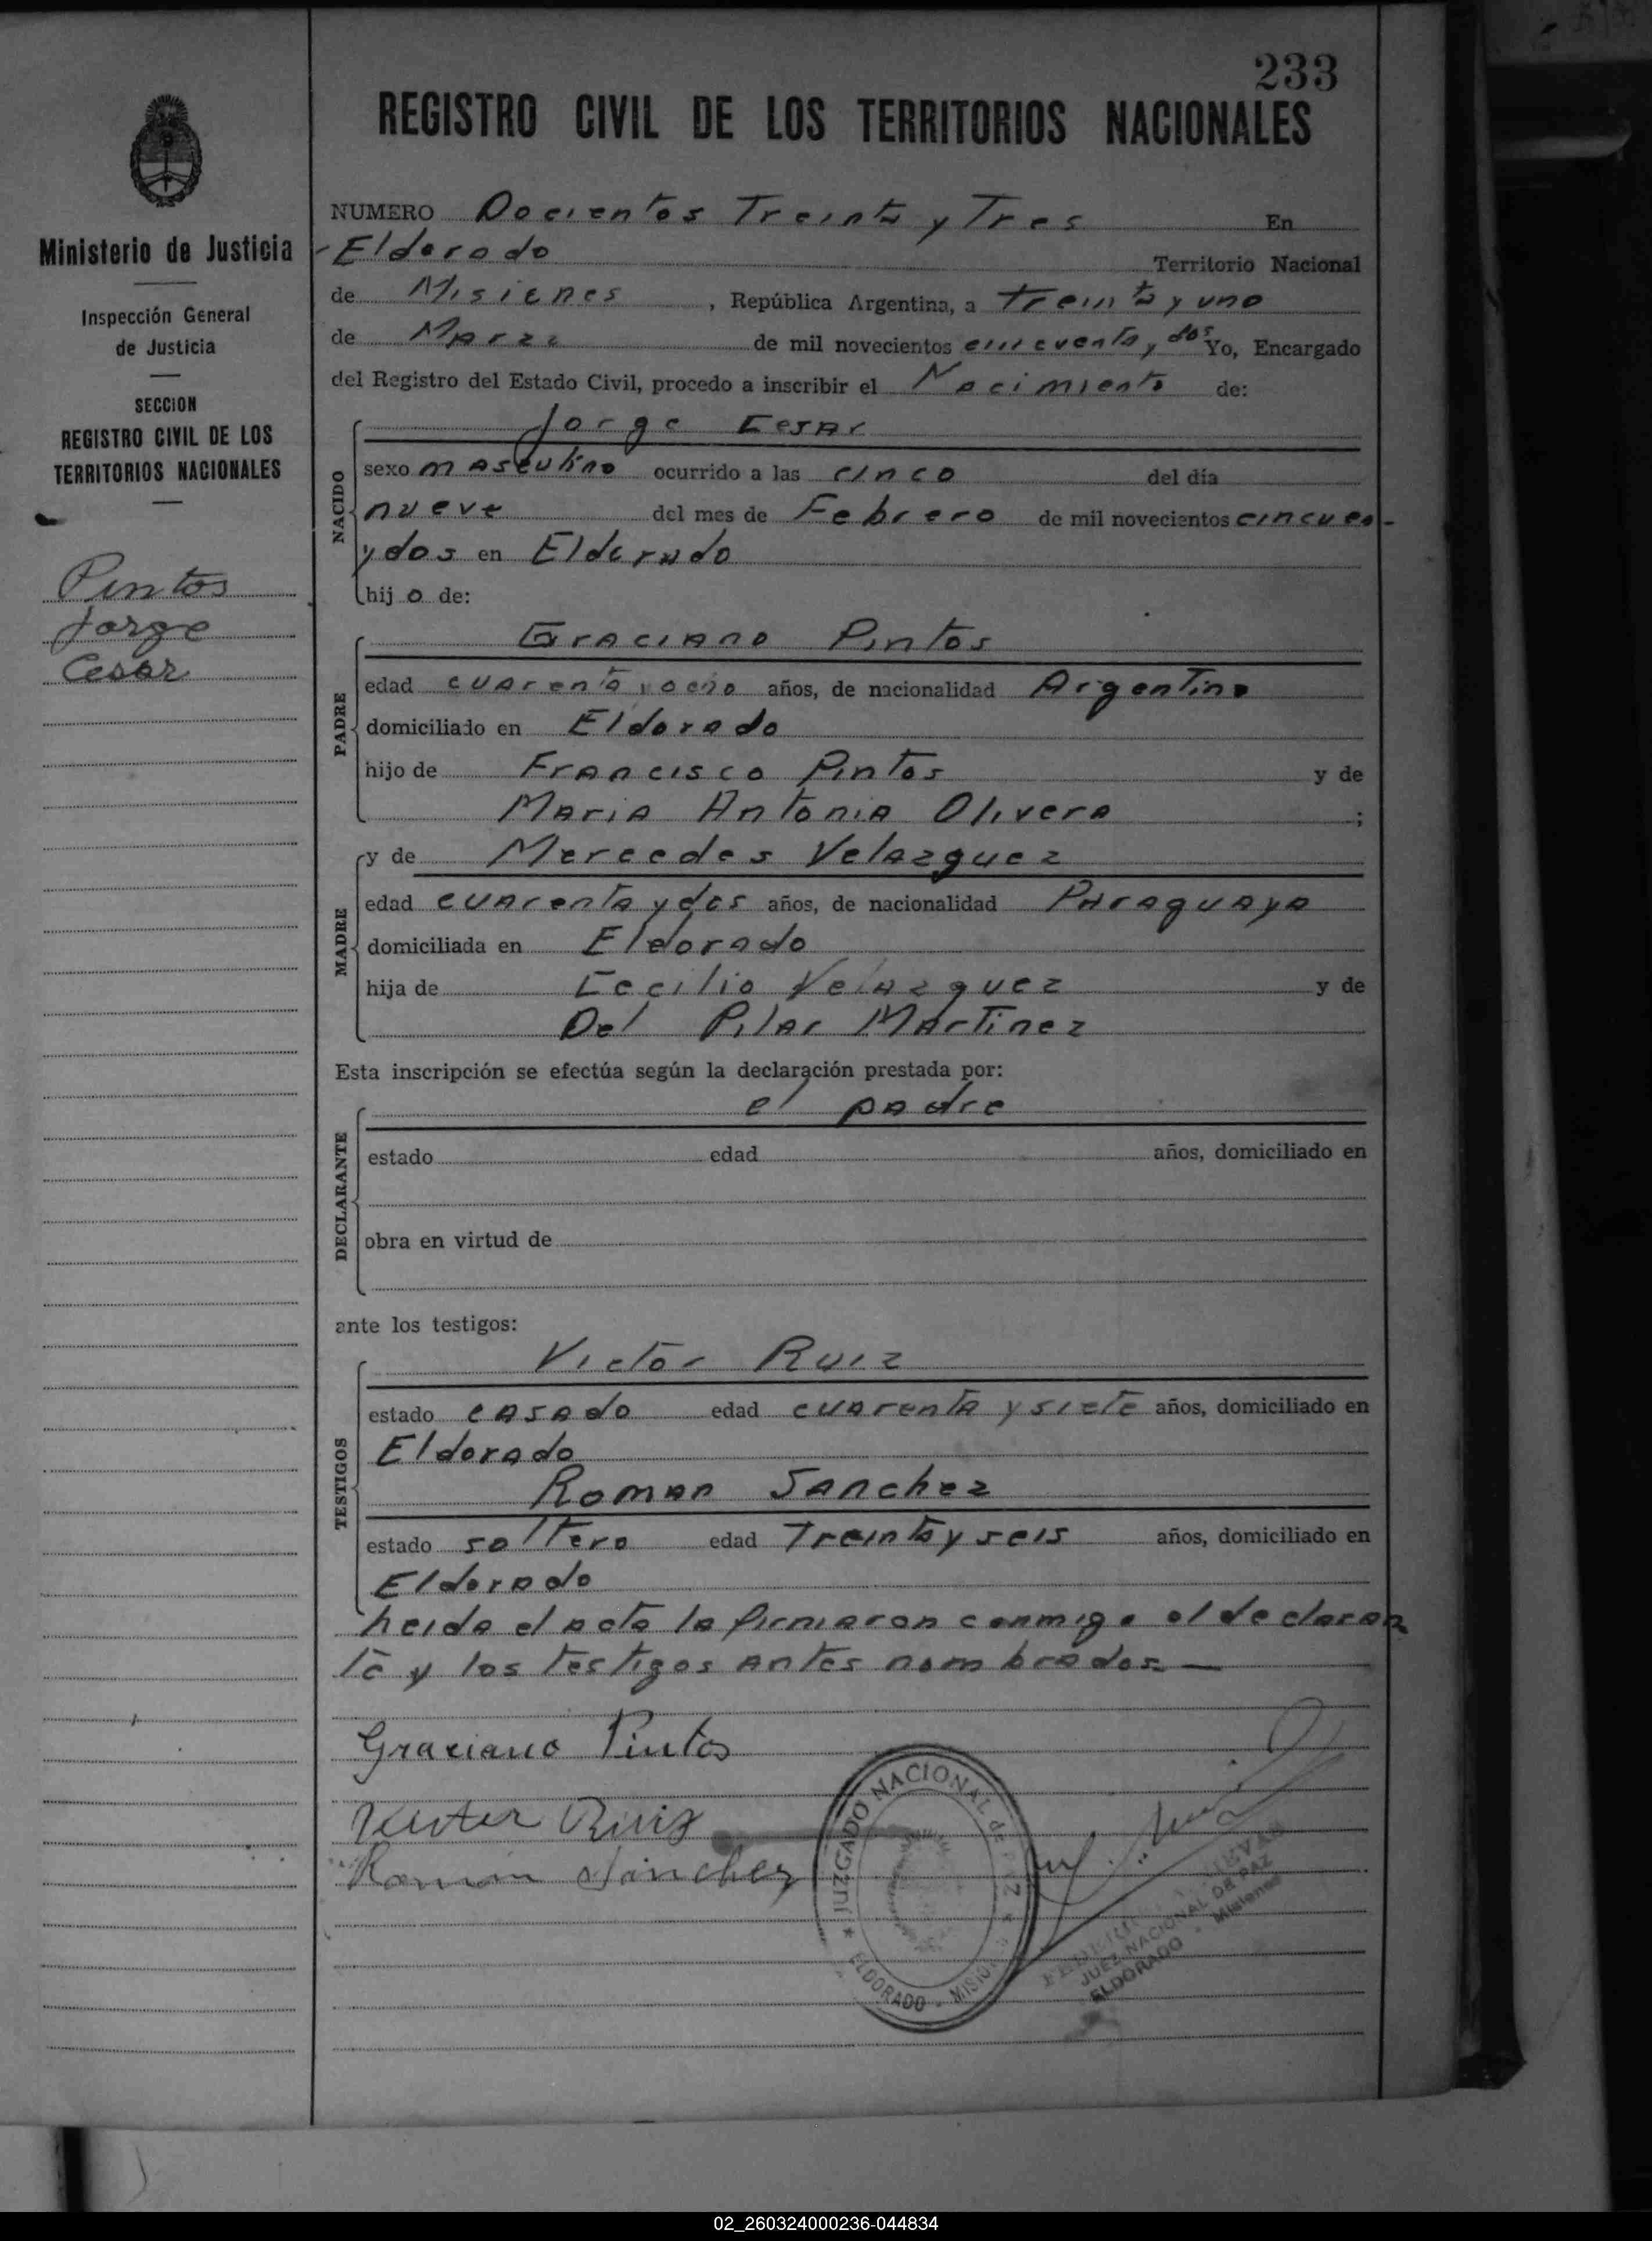 233
REGISTRO CIVIL DE LOS TERRITORIOS NACIONALES
Ministerio de Justicia
Inspección General
de Justicia
SECCION
REGISTRO CIVIL DE LOS
TERRITORIOS NACIONALES
Pintos
Jorge
Cesar
NUMERO Docientos Treinta y Tres En
Eldorado Territorio Nacional
de Misiones, República Argentina, a treinta y uno
de Marzo de mil novecientos cincuenta y dos Yo, Encargado
del Registro del Estado Civil, procedo a inscribir el Nacimiento de:
NACIDO
Jorge Cesar
sexo masculino ocurrido a las cinco del día
nueve del mes de Febrero de mil novecientos cincuen-
y dos en Eldorado
hij o de:
PADRE
Graciano Pintos
edad cuarenta y ocho años, de nacionalidad Argentino
domiciliado en Eldorado
hijo de Francisco Pintos y de
Maria Antonia Olivera ;
MADRE
y de Mercedes Velazquez
edad cuarenta y dos años, de nacionalidad Paraguaya
domiciliada en Eldorado
hija de Cecilio Velazquez y de
Del Pilar Martinez
Esta inscripción se efectúa según la declaración prestada por:
DECLARANTE
el padre
estado edad años, domiciliado en
obra en virtud de
ante los testigos:
TESTIGOS
Victor Ruiz
estado casado edad cuarenta y siete años, domiciliado en
Eldorado
Roman Sanchez
estado soltero edad Treinta y seis años, domiciliado en
Eldorado
Leida el acta la firmaron conmigo el declaran
te y los testigos antes nombrados.—
Graciano Pintos
Victer Ruiz
Román Sánchez
JUZGADO NACIONAL de PAZ
ELDORADO - MISIONES
JUEZ NACIONAL DE PAZ
ELDORADO - Misiones
02_260324000236-044834